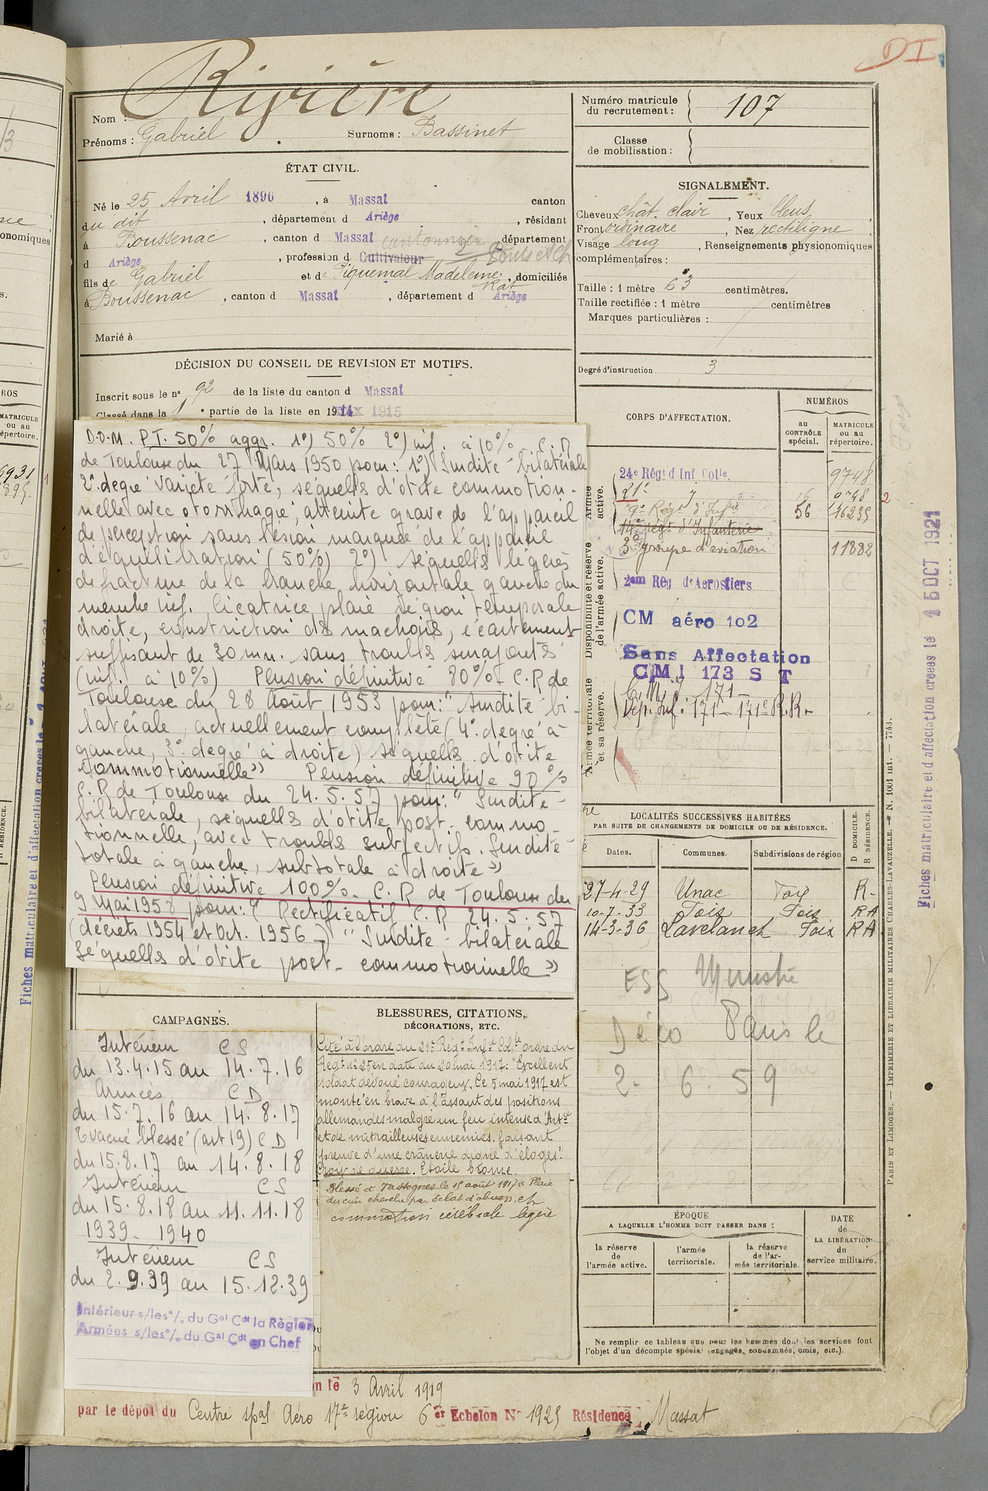 DI
Rivière
Nom :
Prénoms : Gabriel Surnoms : Bassinet
Numéro matricule du recrutement : 107
Classe de mobilisation :
ÉTAT CIVIL.
Né le 25 Avril 1896, à Massat canton
du dit, département d Ariège, résidant
à Boussenac, canton d Massat département
d Ariège, profession d Cultivateur cantonnier
fils de Gabriel et de Piquemal Madeleine, domiciliés
à Boussenac, canton d Massat, département d Ariège
Marié à
SIGNALEMENT.
Cheveux chât. clair, Yeux bleus,
Front ordinaire, Nez rectiligne,
Visage long, Renseignements physionomiques
complémentaires :
Taille : 1 mètre 63 centimètres.
Taille rectifiée : 1 mètre centimètres
Marques particulières :
Degré d'instruction. 3
DÉCISION DU CONSEIL DE REVISION ET MOTIFS.
Inscrit sous le n° 92 de la liste du canton d Massat
Classé dans la 1 e partie de la liste en 1915
D.O.M. P.T. 50% aggr. 1°) 50% 2°) inf. à 10% C.R.
de Toulouse du 27 Mars 1950 pour : 1°) Surdité bilatérale
2e degré variété forte, séquelles d'otite commotion-
nelle avec otorrhagie, atteinte grave de l'appareil
de perception sans lésion marquée de l'appareil
d'équilibration (50%) 2°) séquelles légères
de fracture de la branche horizontale gauche du
membre inf. Cicatrice plaie région temporale
droite, constriction des machoires, écartement
suffisant de 30 mm. sans troubles surajoutés
(inf. à 10%) Pension définitive 80% C.R. de
Toulouse du 28 Août 1953 pour : "Surdité bi-
latérale actuellement complète (4e degré à
gauche, 3e degré à droite) séquelles d'otite
commotionnelle" Pension définitive 90%
C.R. de Toulouse du 24.5.57 pour : "Surdité
bilatérale, séquelles d'otite post. commo-
tionnelle, avec troubles subjectifs. Surdité
totale à gauche, subtotale à droite"
Pension définitive 100% C.R. de Toulouse du
9 Mai 1958 pour : (Rectificatif C.R. 24.5.57
(décrets 1954 et Oct. 1956) "Surdité bilatérale
séquelles d'otite post-commotionnelle"
CORPS D'AFFECTATION.
NUMÉROS
au CONTRÔLE spécial.
MATRICULE ou au répertoire.
Armée active.
Disponibilité et réserve de l'armée active.
Armée territoriale et sa réserve.
24e Régt d'Inf Colle. 9748
21e 9748
9e Régt d'Infie 56 16235
14e Régt d'Infanterie
3e groupe d'aviation 11882
2em Rég d'Aerostiers
CM aéro 102
Sans Affectation
CM 173 S T
C.M.I. 171
Dép. Inf. 171 - 171e R.R.
LOCALITÉS SUCCESSIVES HABITÉES
PAR SUITE DE CHANGEMENTS DE DOMICILE OU DE RÉSIDENCE.
Dates. Communes. Subdivisions de région D DOMICILE. R RÉSIDENCE.
27-4-29 Unac Foix R
10-7-33 Foix Foix RA
14-3-36 Lavelanet Foix RA
2. 6. 59
CAMPAGNES.
Intérieur CS
du 13.4.15 au 14.7.16
Armées CD
du 15.7.16 au 14.8.17
Evacué blessé (art 19) CD
du 15.8.17 au 14.8.18
Intérieur CS
du 15.8.18 au 11.11.18
1939-1940
Intérieur CS
du 2.9.39 au 15.12.39
Intérieur s/les °/. du Gal Cdt la Région
Armées s/les °/. du Gal Cdt en Chef
BLESSURES, CITATIONS,
DÉCORATIONS, ETC.
Cité à l'ordre du 21e Régt Inftie Colle ordre du
Régt n° 25 en date du 20 mai 1917. Excellent
soldat dévoué courageux. Le 5 mai 1917 est
monté en brave à l'assaut des positions
allemandes malgré un feu intense d'Artie
et de mitrailleuses ennemies, faisant
preuve d'une crânerie digne d'éloges.
Croix de guerre. Etoile bronze.
Blessé le 15 août 1917. Plaie
du cuir chevelu par éclat d'obus et
commotion cérébrale légère
ÉPOQUE
A LAQUELLE L'HOMME DOIT PASSER DANS :
la réserve de l'armée active.
l'armée territoriale.
la réserve de l'armée territoriale.
DATE de LA LIBÉRATION du service militaire.
Ne remplir ce tableau que pour les hommes dont les services font
l'objet d'un décompte spécial (engagés, condamnés, omis, etc.).
n le 3 Avril 1919
par le dépôt du Centre spal Aéro 17e région 6e Echelon N° 1925 Résidence Massat
Fiches matriculaire et d'affectation créées le 15 OCT 1921
PARIS ET LIMOGES. — IMPRIMERIE ET LIBRAIRIE MILITAIRES CHARLES-LAVAUZELLE. — N. 1001 int. — 7743.
Fiches matriculaire et d'affectation créées le